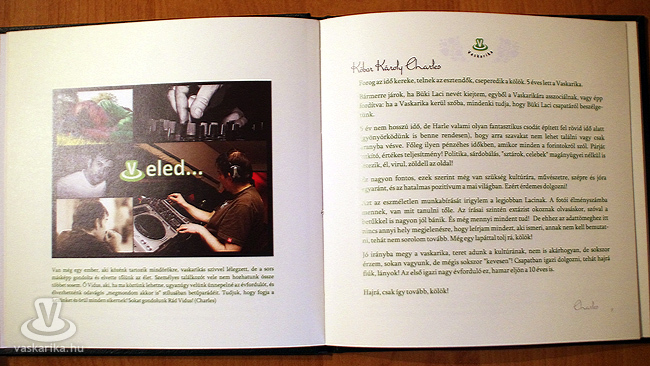 eled...
Van még egy ember, aki közénk tartozik mindörökre, vaskarikás szívvel lélegzett, de a sors
másképp gondolta és elvette tőlünk az élet. Személyes találkozót vele nem hozhatunk össze
többet sosem. Ő Vidus, aki, ha ma köztünk lehetne, ugyanúgy velünk ünnepelné az évfordulót, és
elismerésének odavágós "megmondom akkor is" stílusában betűparádét. Tudjuk, hogy fogja a
minden sikernek! Sokat gondolunk Rád Vidus! (Charles)
vaskarika.hu
Vaskarika
Kóbor Károly Charles
Forog az idő kereke, telnek az esztendők, cseperedik a kölök. 5 éves lett a Vaskarika.
Bármerre járok, ha Büki Laci nevét kiejtem, egyből a Vaskarikára asszociálnak, vagy épp
fordítva: ha a Vaskarika kerül szóba, mindenki tudja, hogy Büki Laci csapatáról beszélge-
tünk.
5 év nem hosszú idő, de Harle valami olyan fantasztikus csodát épített fel rövid idő alatt
(gyönyörködünk is benne rendesen), hogy arra szavakat nem lehet találni vagy csak
aranyba vésve. Főleg ilyen pénzéhes időkben, amikor minden a forintokról szól. Párját
ritkító, értékes teljesítmény! Politika, sárdobálás, "sztárok, celebek" magánügyei nélkül is
létezik, él, virul, zöldell az oldal!
nagyon fontos, ezek szerint még van szükség kultúrára, művészetre, szépre és jóra
egyaránt, és az hatalmas pozitívum a mai világban. Ezért érdemes dolgozni!
Azt az eszméletlen munkabírását irigylem a legjobban Lacinak. A fotói élményszámba
mennek, van mit tanulni tőle. Az írásai szintén extázist okoznak olvasáskor, szóval a
betűkkel is nagyon jól bánik. És még mennyi mindent tud! De ehhez az adattömeghez itt
nincs annyi hely megjelenésre, hogy leírjam mindazt, aki ismeri, annak nem kell bemutat-
ni, tehát nem sorolom tovább. Még egy lapáttal tolj rá, kölök!
Jó irányba megy a vaskarika, teret adunk a kultúrának, nem is akárhogyan, de sokszor
érzem, sokan vagyunk, de mégis sokszor "kevesen"! Csapatban igazi dolgozni, tehát hajrá
fiúk, lányok! Az első igazi nagy évforduló ez, hamar eljön a 10 éves is.
Hajrá, csak így tovább, kölök!
Charles